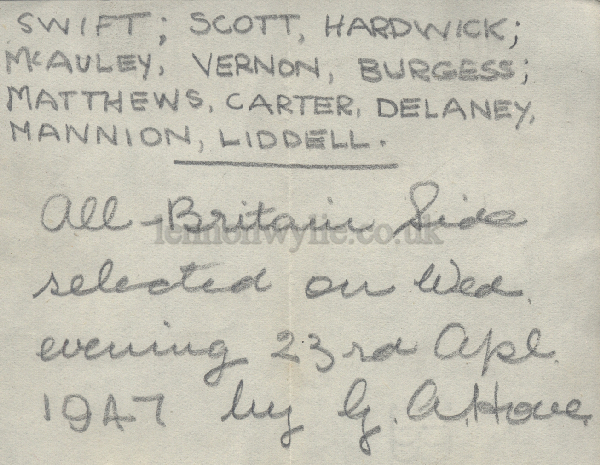 SWIFT; SCOTT, HARDWICK;
McAULEY, VERNON, BURGESS;
MATTHEWS, CARTER, DELANEY,
MANNION, LIDDELL.
All-Britain Side
lennonwylie.co.uk
selected on Wed.
evening 23rd Apl.
1947 by G. A. Howe.